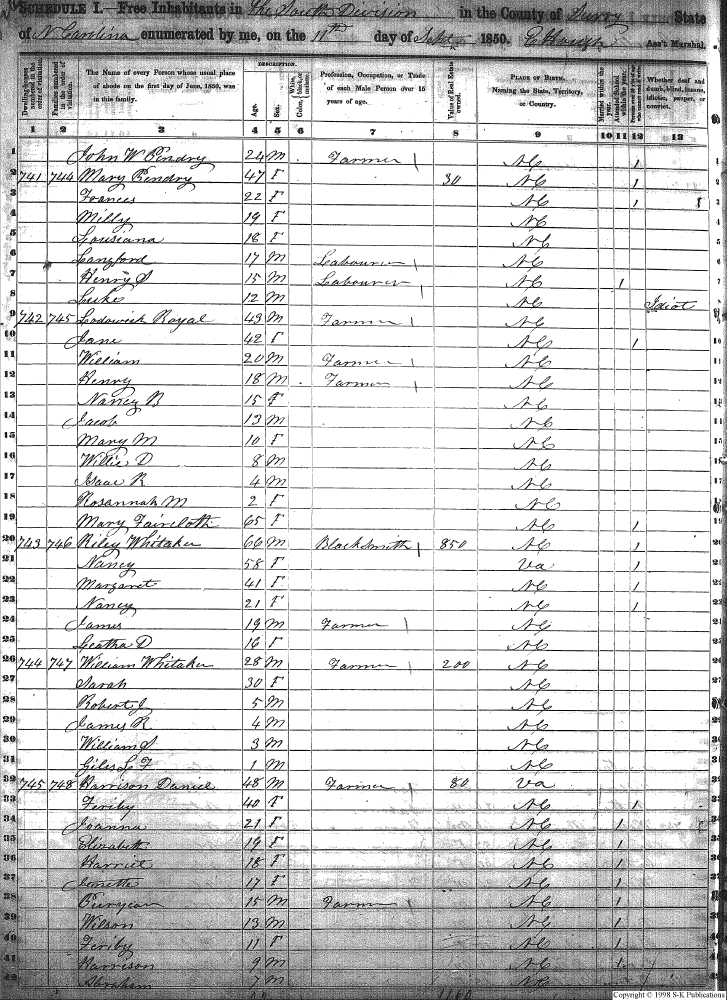 SCHEDULE I.—Free Inhabitants in the South Division in the County of Surry State
of N Carolina enumerated by me, on the 11th day of Sept 1850. Ass't Marshal.
DESCRIPTION.
Dwelling-houses numbered in the order of visitation.
Families numbered in the order of visitation.
The Name of every Person whose usual place of abode on the first day of June, 1850, was in this family.
Age.
Sex.
Profession, Occupation, or Trade of each Male Person over 15 years of age.
Value of Real Estate owned.
PLACE OF BIRTH. Naming the State, Territory, or Country.
Married within the year.
Whether deaf and dumb, blind, insane, idiotic, pauper, or convict.
1 2 3 4 5 6 7 8 9 10 11 12 13
1 John W Pendry 24 M Farmer NC 1
2 741 744 Mary Pendry 47 F 30 NC 1
3 Frances 22 F NC 1
4 Milly 19 F NC
5 Lousiana 18 F NC
6 Langford 17 M Labourer NC
7 Henry S 15 M Labourer NC 1
8 Luke 12 M NC Idiot
9 742 745 Lodowick Royal 43 M Farmer NC
10 Jane 42 F NC 1
11 William 20 M Farmer NC
12 Henry 18 M Farmer NC
13 Nancy B 15 F NC
14 Jacob 13 M NC
15 Mary M 10 F NC
16 Willie D 8 M NC
17 Isaac R 4 M NC
18 Rosannah M 2 F NC
19 Mary Faircloth 65 F NC 1
20 743 746 Riley Whitaker 66 M Blacksmith 850 NC 1
21 Nancy 58 F Va 1
22 Margaret 41 F NC 1
23 Nancy 21 F NC 1
24 James 19 M Farmer NC
25 Leatha D 16 F NC
26 744 747 William Whitaker 28 M Farmer 200 NC
27 Sarah 30 F NC
28 Robert J 5 M NC
29 James R 4 M NC
30 William S 3 M NC
31 Giles L F 1 M NC
32 745 748 Harrison Daniel 48 M Farmer 80 Va
33 Feriby 40 F NC 1
34 Joanna 21 F NC 1
35 Elizabeth 19 F NC 1
36 Harriet 18 F NC 1
37 17 F NC 1
38 Puryear 15 M Farmer NC 1
39 Wilson 13 M NC 1
40 Feriby 11 F NC 1
41 Harrison 9 M NC 1
42 Abraham 7 M NC
Copyright © 1998 S-K Publications